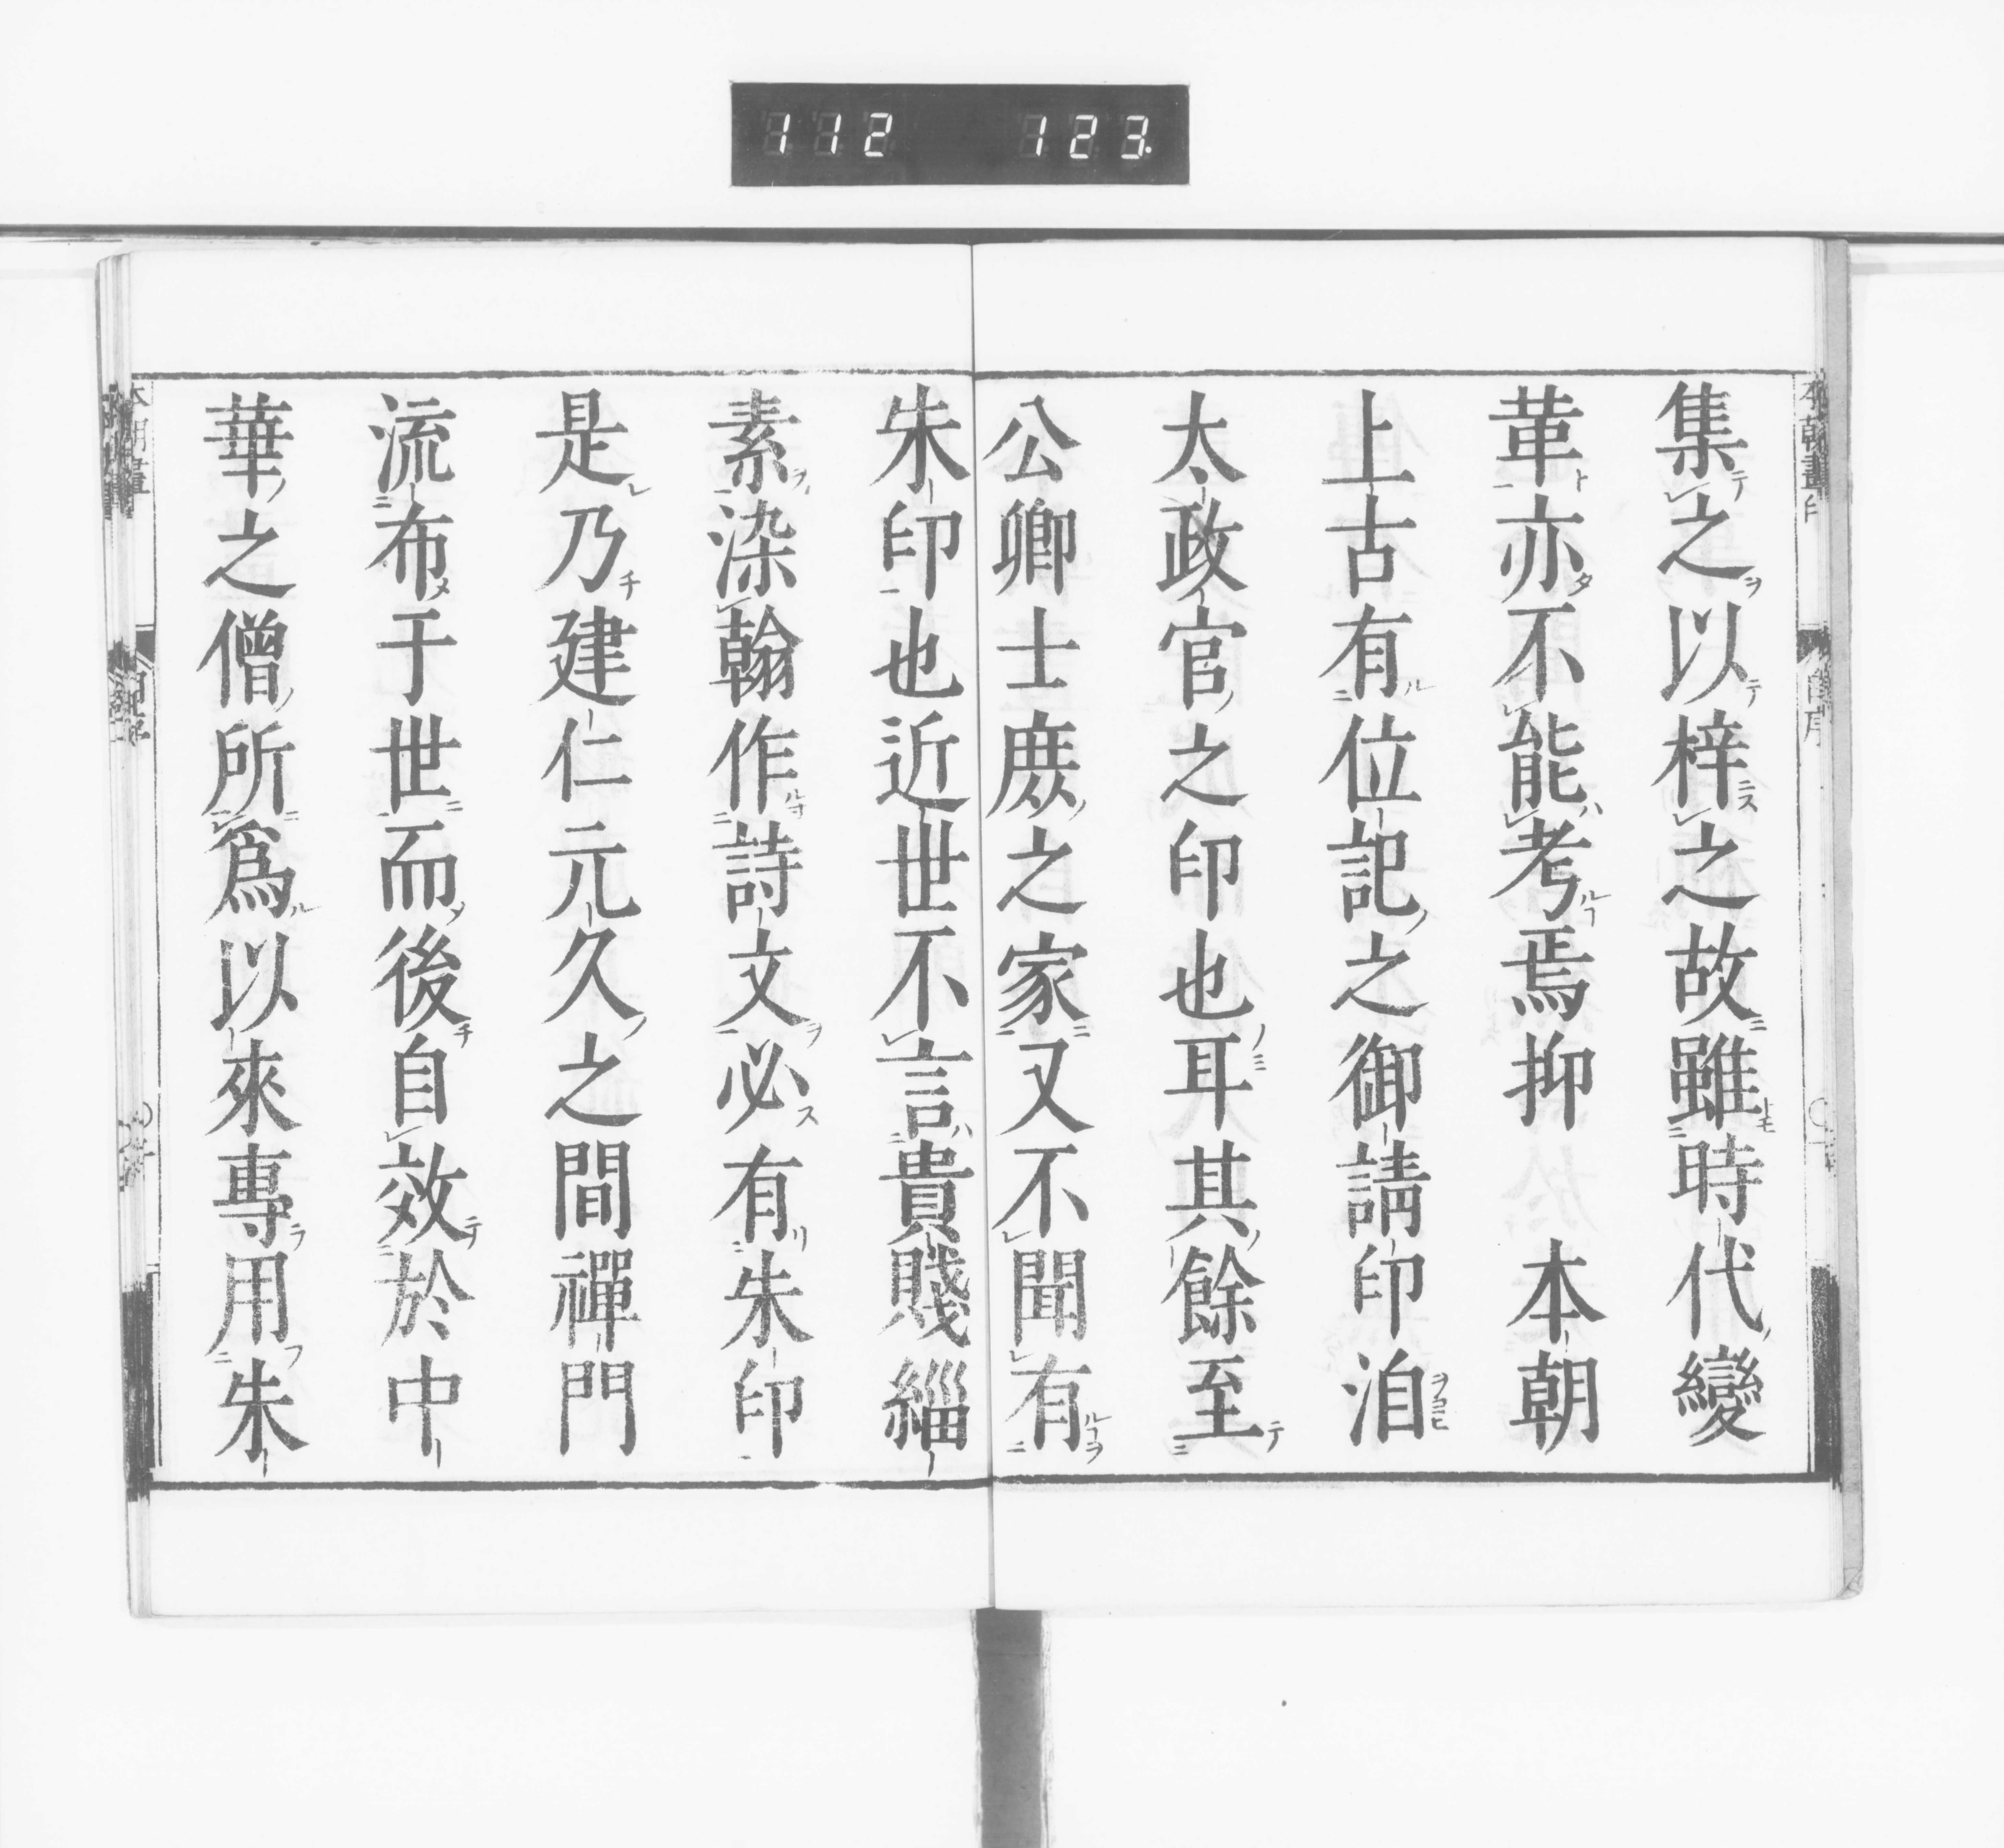 112 123.
集之以梓之故雖時代變
革亦不能考焉抑 本朝
上古有位記之御請印洎
太政官之印也耳其餘至
公卿士庶之家又不聞有
朱印也近世不言貴賤緇
素染翰作詩文必有朱印
是乃建仁元久之間禪門
流布于世而後自效於中
華之僧所爲以來專用朱